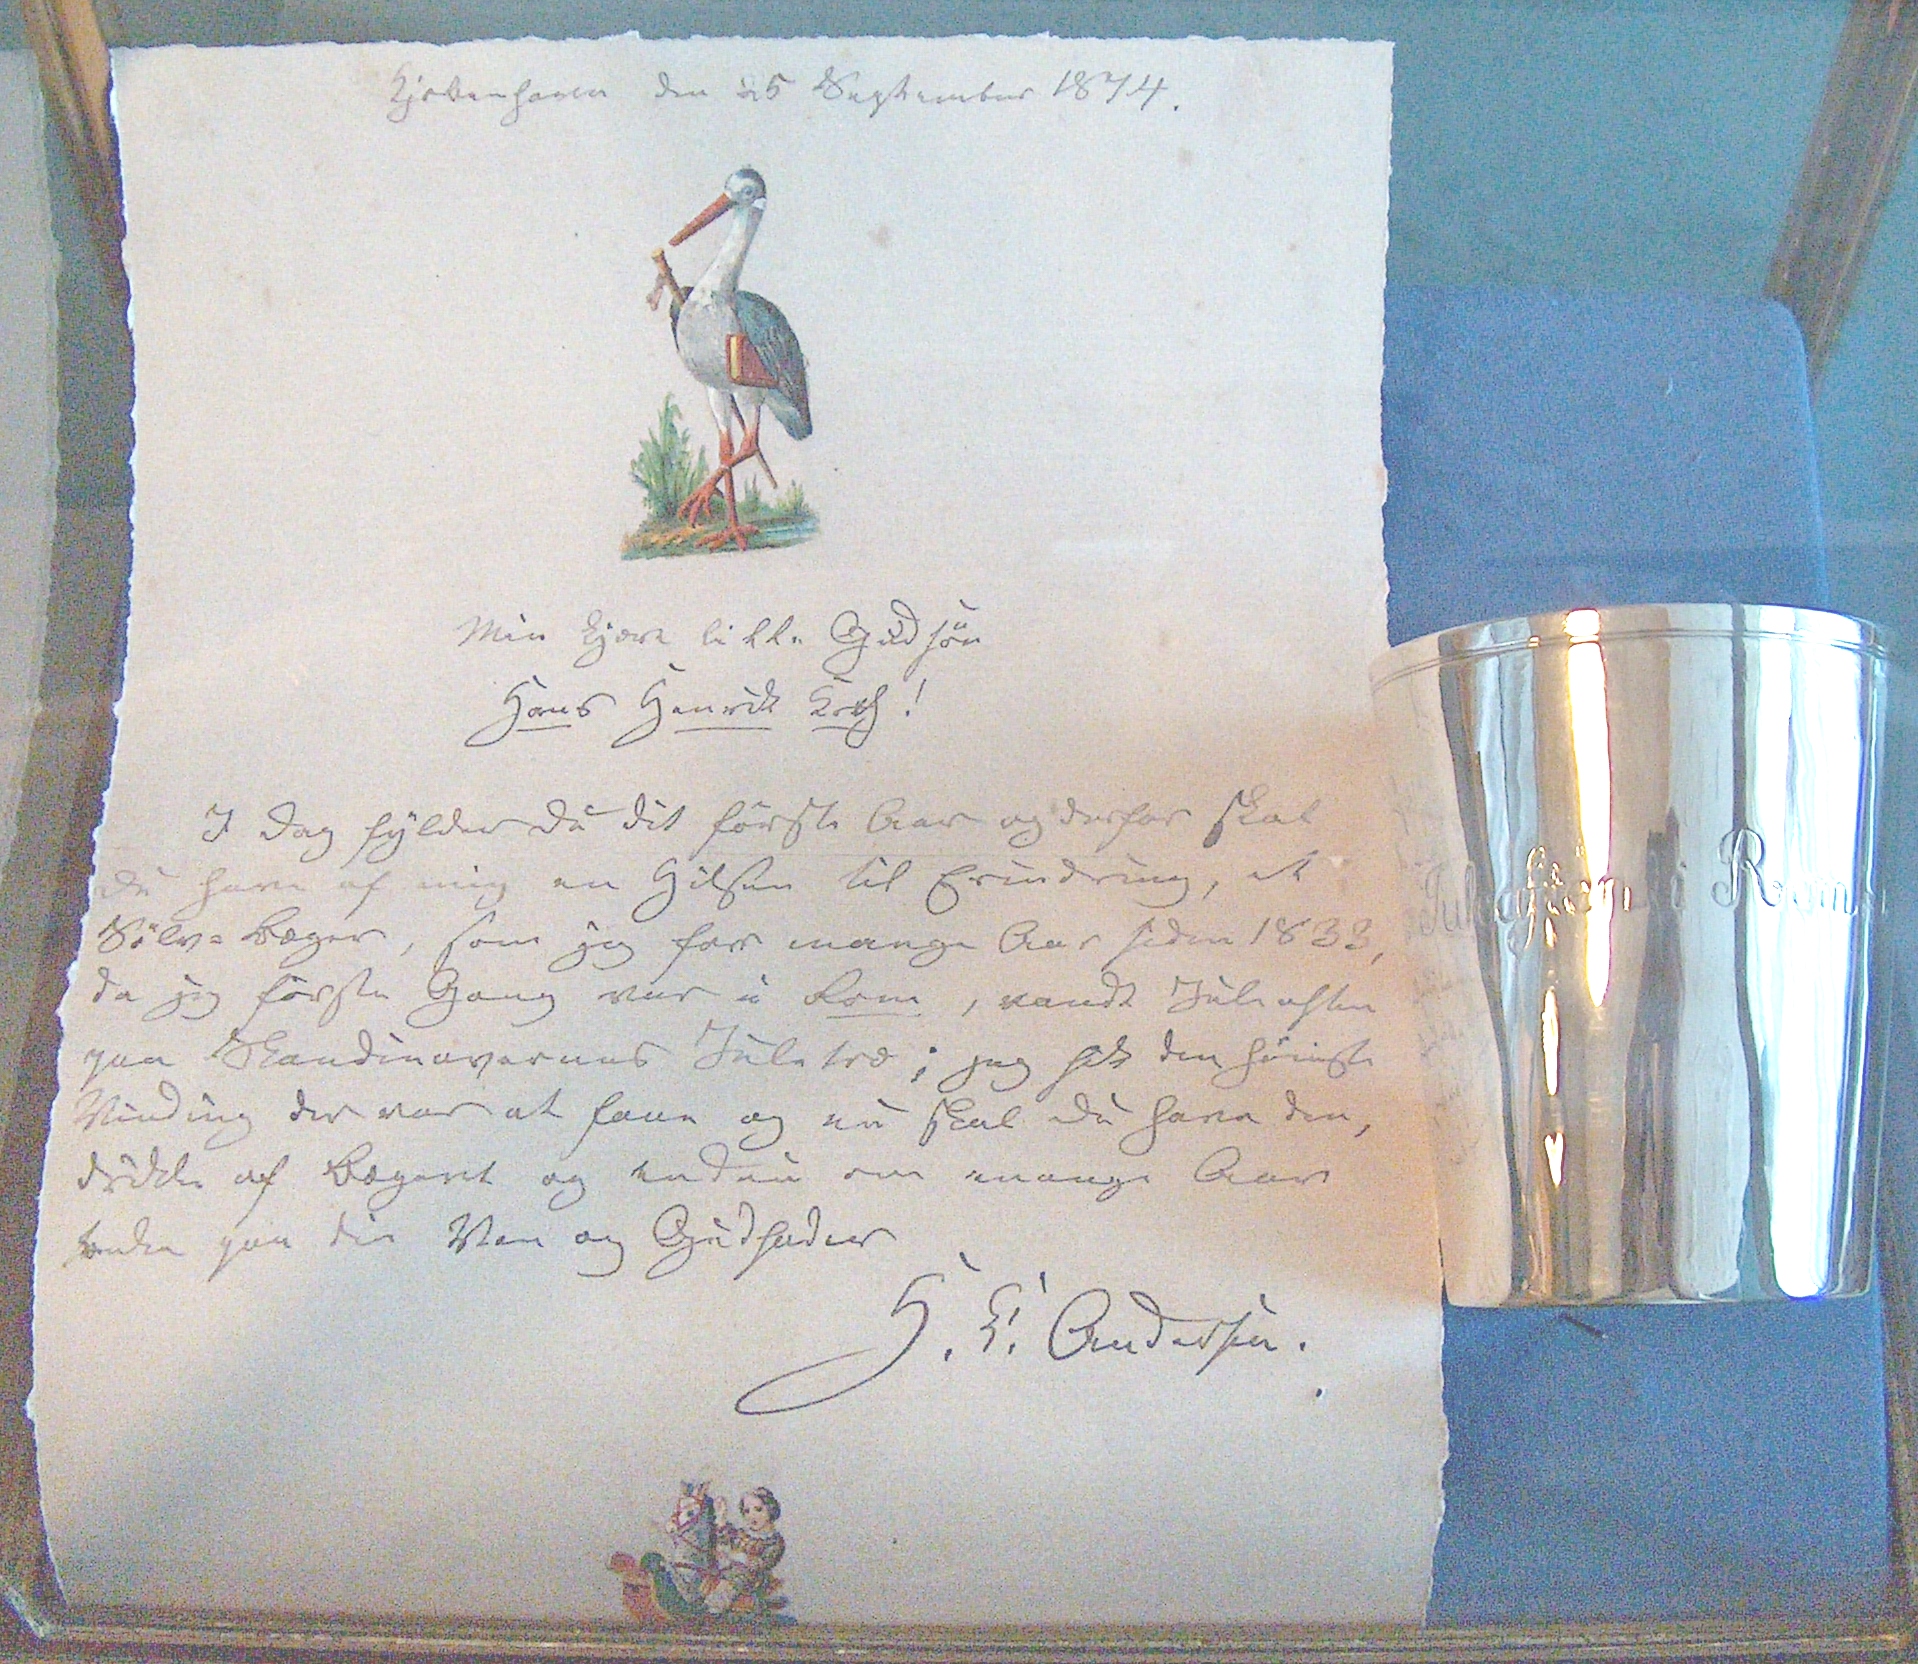 Kjøbenhavn den 25 September 1874.
Min kjære lille Gudsøn
Hans Henrik Koch!
I Dag fylder Du dit første Aar og derfor skal
Du have af mig en Hilsen til Erindring, et
Sølv-Bæger, som jeg for mange Aar siden 1833,
da jeg første Gang var i Rom, vandt Juleaften
paa Skandinavernes Juletræ; jeg fik den
Vinding der var at faae og nu skal Du have den,
drikke af Bægeret og endnu om mange Aar
tænke paa din Ven og Gudfader
H. C. Andersen.
Juleaften i Rom